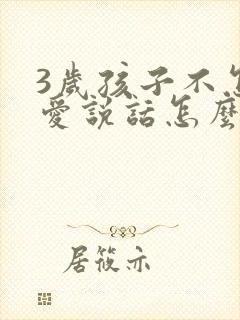 3歲孩子不怎
愛說話怎麼
居筱亦